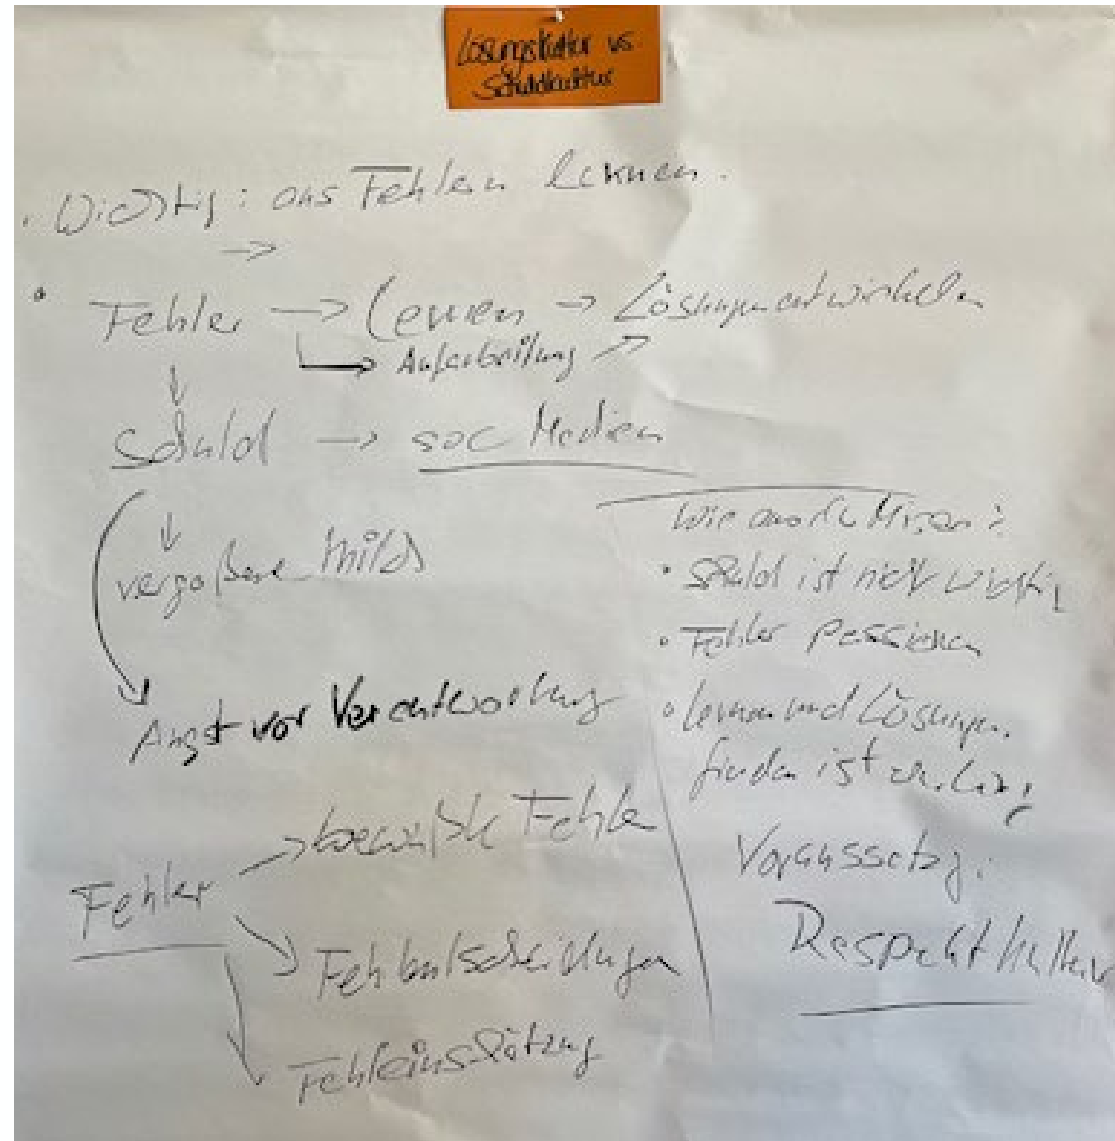 Lösungskultur vs.
Schuldkultur
· Wichtig: aus Fehlern lernen.
→
• Fehler → Lernen → Lösungen entwickeln
→ Aufarbeitung →
↓
Schuld → soc Medien
↓
vergoßene Milch
Angst vor Verantwortung
Fehler → bewußte Fehler
Fehlentscheidungen
Fehleinschätzung
Wie
• Schuld ist nicht wichtig
• Fehler passieren
• lernen und Lösungen
finden ist wichtig
Voraussetzg:
Respektkultur